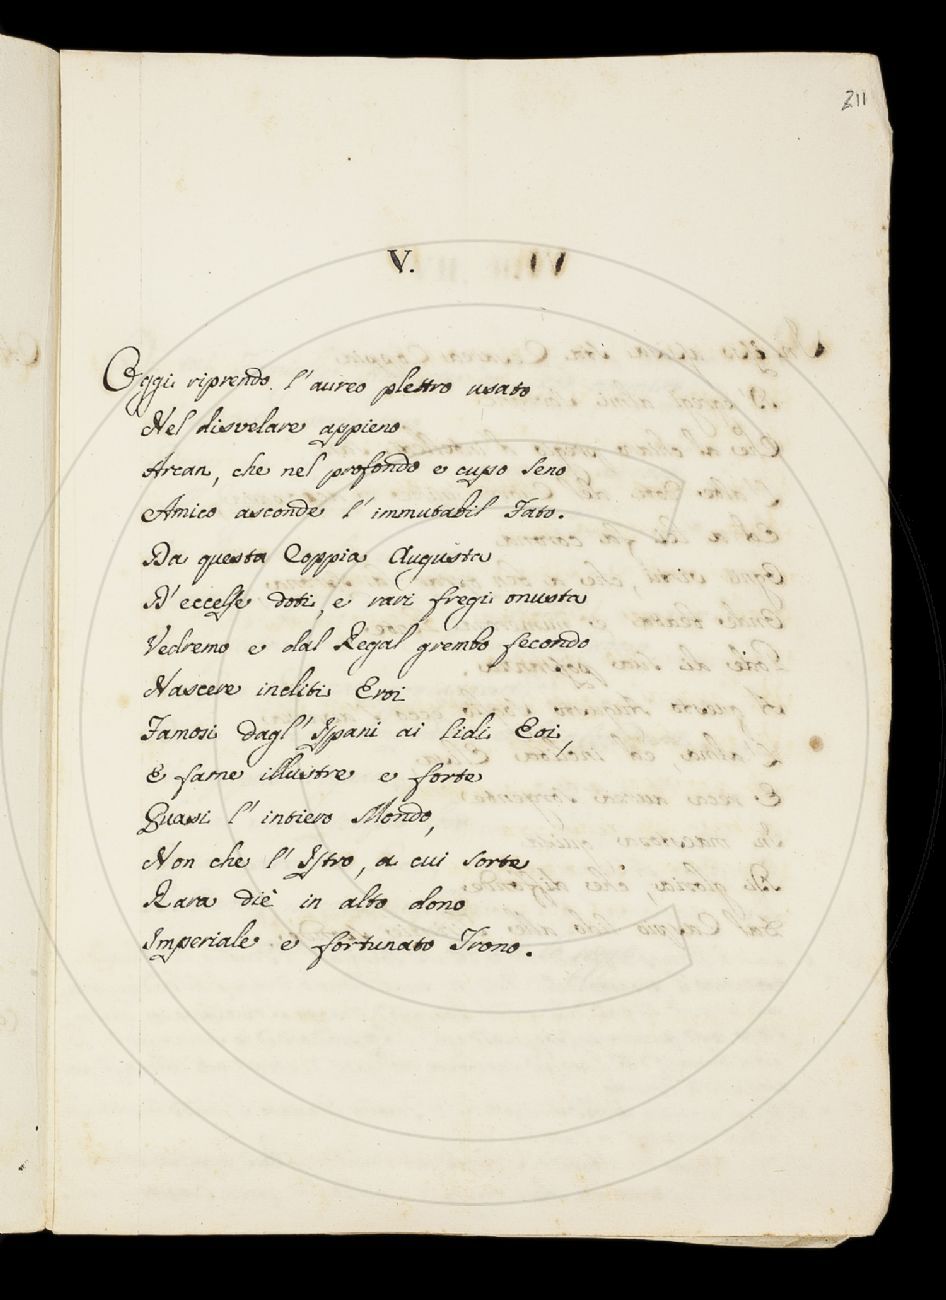 211
V.
Oggi riprendo l'aureo plettro usato
Nel disvelare appieno
Arcan, che nel profondo e cupo seno
Amico asconde l'immutabil Fato.
Da questa Coppia Augusta
D'eccelse doti, e rari fregi onusta
Vedremo e dal Regal grembo fecondo
Nascere incliti Eroi
Famosi dagl'Ispani ai lidi Eoi,
E fame illustre e forte
Quasi l'intiero Mondo,
Non che l'Istro, a cui sorte
Rara diè in alto dono
Imperiale e fortunato Trono.